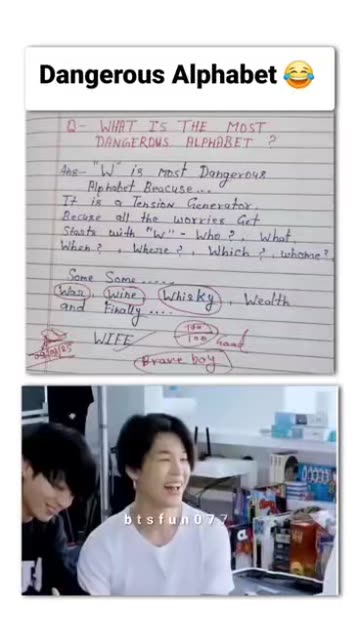 Dangerous Alphabet 😂
Q- WHAT IS THE MOST
DANGEROUS ALPHABET ?
Ans- "W" is most Dangerous
Alphabet Beacuse...
It is a Tension Generator.
Becuse all the worries Get
Starts with "W" - Who?, What,
When?, Where?, Which?, whome?,
Some Some.....
War Wine Whisky, Wealth
and Finally....
WIFE
100
100 Good
Brave boy
btsfun077